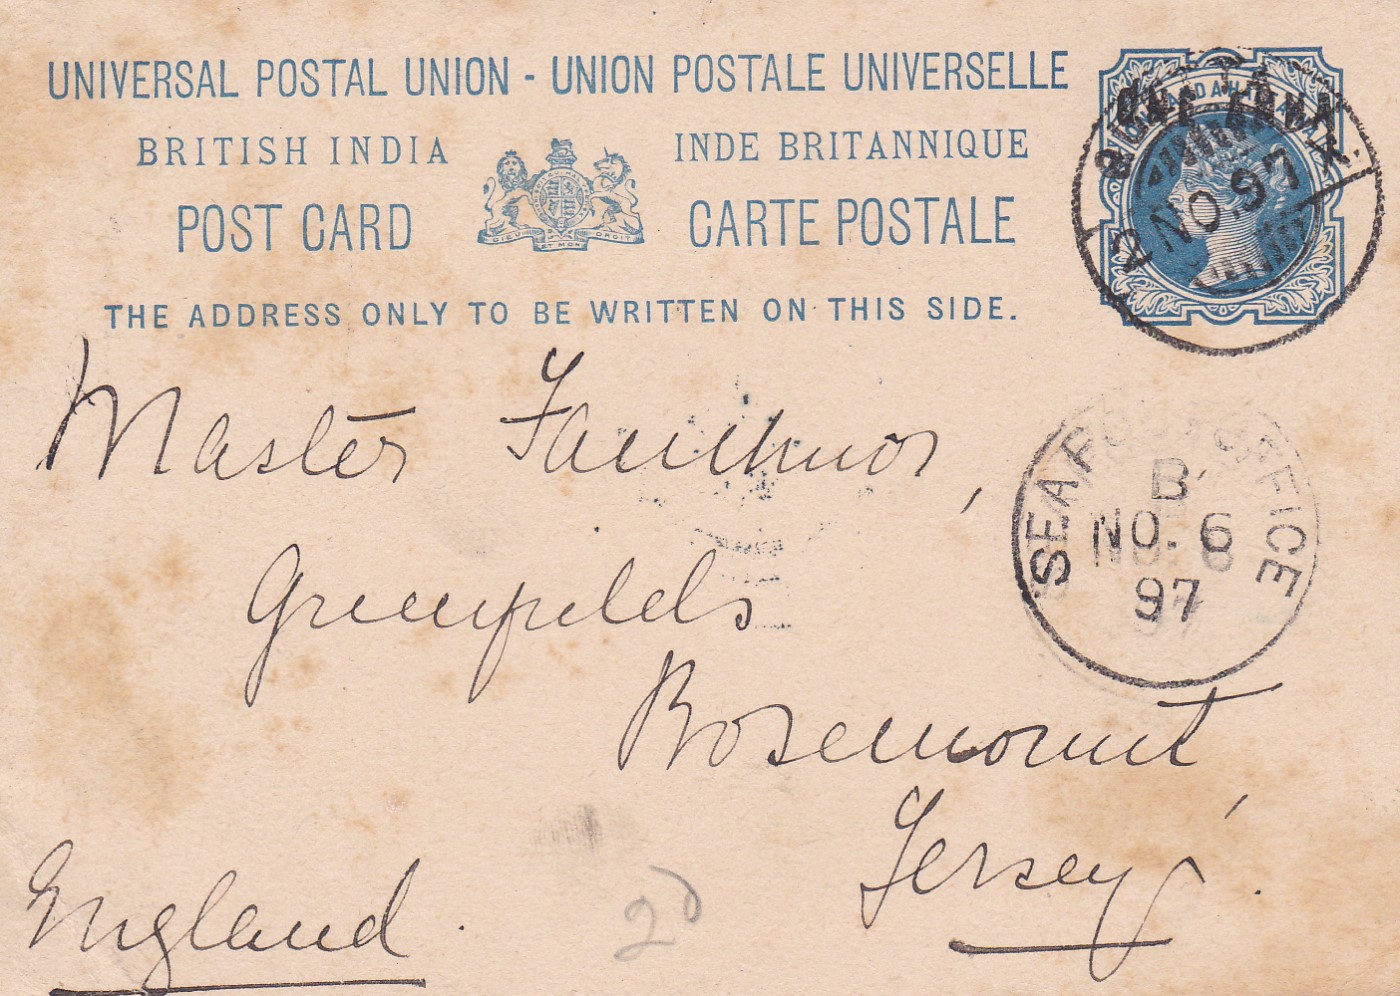 UNIVERSAL POSTAL UNION - UNION POSTALE UNIVERSELLE
BRITISH INDIA
INDE BRITANNIQUE
POST CARD
CARTE POSTALE
DIEU ET MON DROIT
THE ADDRESS ONLY TO BE WRITTEN ON THIS SIDE.
ONE ANNA
2 NO. 97
SEA POST OFFICE
B
NO. 6
97
Master
Greenfields
Rosemount,
Jersey.
England.
2d